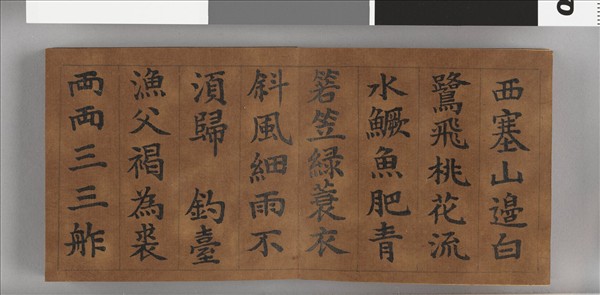 西塞山邊白
鷺飛桃花流
水鱖魚肥青
箬笠緑蓑衣
斜風細雨不
湏歸 釣臺
漁父褐為裘
両両三三舴